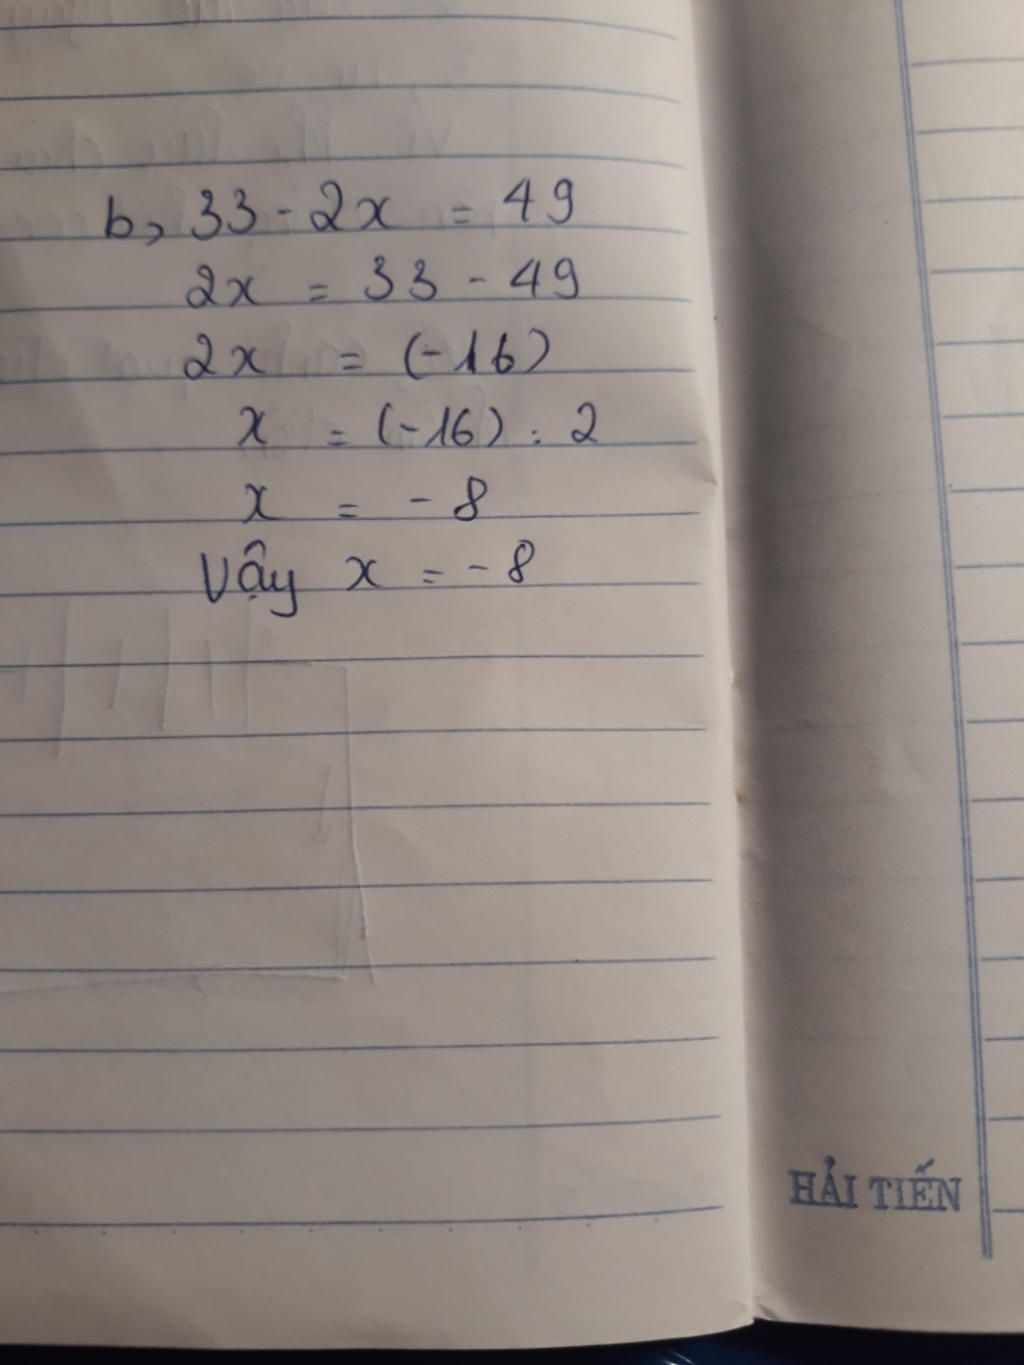 b, 33 - 2x = 49
2x = 33 - 49
2x = (-16)
x = (-16) : 2
x = - 8
Vậy x = - 8
HẢI TIẾN